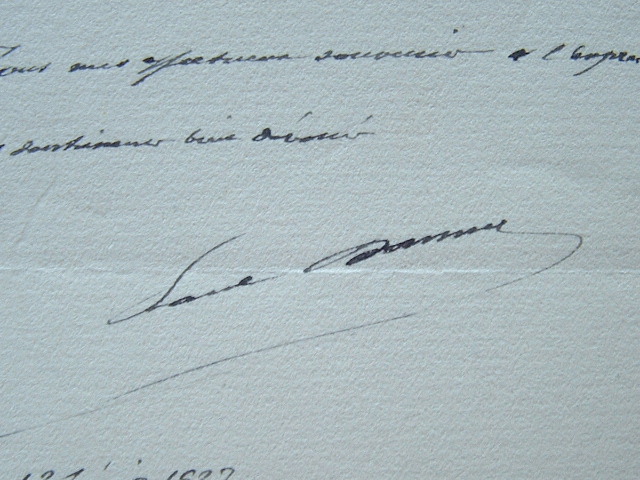 tous mes affectueux souvenirs & l'expres
sentiments bien dévoués
Paul Doumer